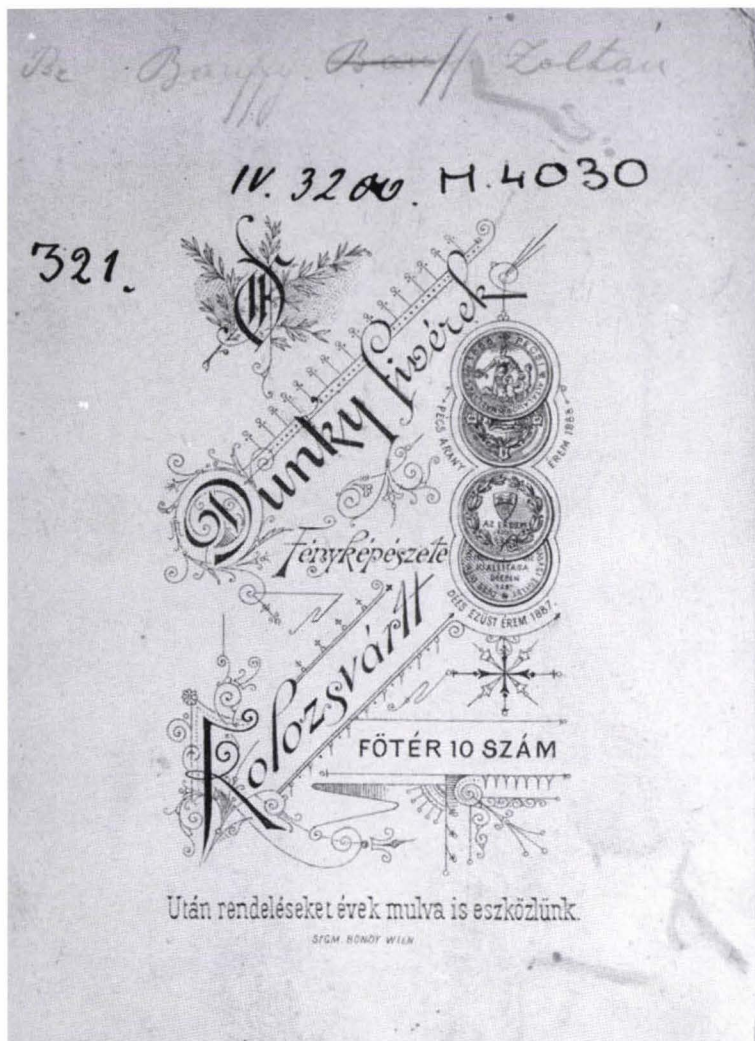 Br Banffy Banff Zoltán
IV. 3200. M. 4030
321.
Dunky fivérek
PÉCS ARANY ÉREM 1888
AZ ÉRDEM
KIÁLLÍTÁSA
DÉESEN
DÉÉS EZÜST ÉREM 1887.
Fényképészete
Kolozsvártt
FŐTÉR 10 SZÁM
Után rendeléseket évek mulva is eszközlünk.
SIGM. BONDY WIEN